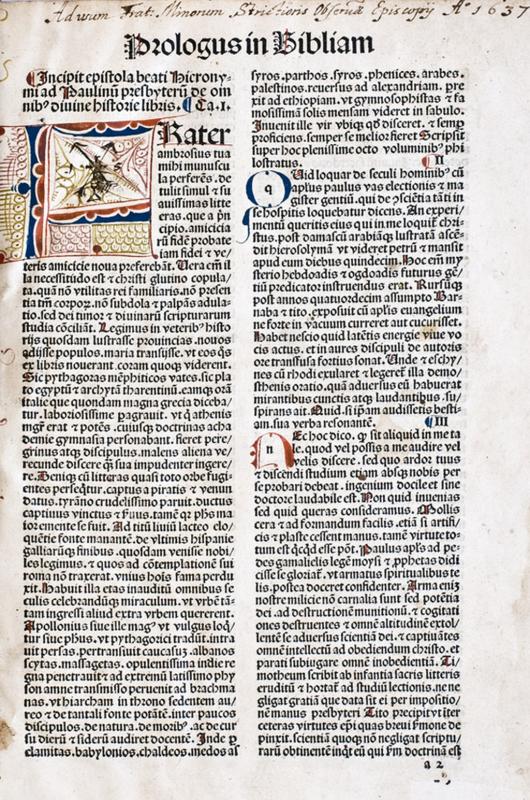 Ad usum Frat: Minorum Strictioris Obseruã Episcopij Aº 1637
Prologus in Bibliam
Incipit epistola beati Hierony-
mi ad Paulinũ presbyterũ de om
nibꝰ diuine historie libris. Ca. I.
Frater
ambrosius tua
mihi munuscu
la perferẽs. de
tulit simul ⁊ su
auissimas litte
eras. que a p̃n
cipio. amicicia
rũ fidẽ probate
iam fidei ⁊ ve/
teris amicicie noua preferebãt. Uera em̃ il
la necessitudo est ⁊ christi glutino copula/
ta. quã nõ vtilitas rei familiaris. nõ presen
tia tm̃ corpoꝝ. nõ subdola ⁊ palpãs adula-
tio. sed dei timor ⁊ diuinaꝝ scripturarum
studia cõciliãt. Legimus in veteribꝰ histo
rijs quosdam lustrasse prouincias. nouos
adisse populos. maria transisse. vt eos q̃s
ex libris nouerant. coram quoqꝫ viderent.
Sic pythagoras mẽphiticos vates. sic pla
to egyptũ ⁊ archytã tharentinũ. eamqꝫ orã
italie que quondam magna grecia diceba/
tur. laboriosissime ꝑagrauit. vt q̃ athenis
mgr̃ erat ⁊ potẽs. cuiusqꝫ doctrinas acha
demie gymnasia personabant. fieret pere/
grinus atqꝫ discipulus. malens aliena ve/
recunde discere qꝫ̃ sua impudenter ingere/
re. Deniqꝫ cũ litteras quasi toto orbe fugi-
entes perseq̃tur. captus a piratis ⁊ venun
datus. tyrãno crudelissimo paruit. ductus
captiuus vinctus ⁊ seruus. tamẽ qꝛ ph̃s ma
ior emente se fuit. Ad titũ liuiũ lacteo elo/
quẽtie fonte manantẽ. de vltimis hispanie
galliarũqꝫ finibus. quosdam venisse nobi/
les legimus. ⁊ quos ad cõtemplationẽ sui
roma nõ traxerat. vnius hoĩs fama perdu
xit. Habuit illa etas inauditũ omnibus se
culis celebrandũqꝫ miraculum. vt vrbẽ tã-
tam ingressi aliud extra vrbem quererent.
Apollonius siue ille magꝰ vt vulgus loq̃/
tur siue ph̃us. vt pythagorici tradũt. intra
uit persas. pertransiuit caucasuȝ. albanos
scytas. massagetas. opulentissima indie re
gna penetrauit ⁊ ad extremũ latissimo phy
son amne transmisso peruenit ad brachma
nas. vt hiarcham in throno sedentem au/
reo ⁊ de tantali fonte potãtẽ. inter paucos
discipulos. de natura. de moribꝰ. ac de cur
su dierũ ⁊ siderũ audiret docentẽ. Inde ꝑ
elamitas. babylonios. chaldeos. medos as
syros. parthos. syros. phenices. arabes.
palestinos. reuersus ad alexandriam. pre
xit ad ethiopiam. vt gymnosophistas ⁊ fa
mosissimã solis mensam videret in sabulo.
Inuenit ille vir vbiqꝫ qd̃ disceret. ⁊ semp
proficiens. semper se melior fieret Scripsit
super hoc plenissime octo voluminibꝰ phi
lostratus. II
Quid loquar de seculi hominibꝰ cũ
apl̃us paulus vas electionis ⁊ ma
gister gentiũ. qui de ꝯsciẽtia tãti in
se hospitis loquebatur dicens. An experi/
mentũ queritis eius qui in me loquit̃ chri-
stus. post damascũ arabiãqꝫ lustratã ascẽ-
dit hierosolymã vt videret petrũ ⁊ mansit
apud eum diebus quindecim. Hoc em̃ my
sterio hebdoadis ⁊ ogdoadis futurus gẽ/
tiũ predicator instruendus erat. Rursũqꝫ
post annos quatuordecim assumpto Bar-
naba ⁊ tito. exposuit cũ apl̃is euangelium
ne forte in vacuum curreret aut cucurrisset.
Habet nescio quid latẽtis energie viue vo
cis actus. et in aures discipuli de autoris
ore transfusa fortius sonat. Unde ⁊ eschy/
nes cũ rhodi exularet ⁊ legeret̃ illa demo/
sthenis oratio. quã aduersus eũ habuerat
mirantibus cunctis atqꝫ laudantibus. su/
spirans ait. Quid. si ip̃am audissetis besti-
am. sua verba resonantẽ. III
Nec hoc dico. q̃ sit aliquid in me ta
le. quod vel possis a me audire vel
velis discere. sed quo ardor tuus
⁊ discendi studium etiam absqꝫ nobis per
se probari debeat. ingenium docile et sine
doctore laudabile est. Non quid inuenias
sed quid queras consideramus. Mollis
cera ⁊ ad formandum facilis. etiã si artifi/
cis ⁊ plaste cessent manus. tamẽ virtute to-
tum est qcqd̃ esse põt. Paulus apl̃s ad pe-
des gamalielis legẽ moysi ⁊ ꝓphetas didi
cisse se gloriat̃. vt armatus spiritualibus te
lis. postea doceret confidenter. Arma enĩȝ
nostre milicie nõ carnalia sunt sed potẽtia
dei. ad destructionẽ munitionũ. ⁊ cogitati
ones destruentes ⁊ omnẽ altitudinẽ extol/
lentẽ se aduersus scientiã dei. ⁊ captiuãtes
omnẽ intellectũ ad obediendum christo. et
parati subiugare omnẽ inobedientiã. Ti/
motheum scribit ab infantia sacris litteris
eruditũ ⁊ hortat̃ ad studiũ lectionis. ne ne
gligat gratiã que data sit ei per impositio/
nẽ manus presbyteri Tito precipit vt iter
ceteras virtutes epi quas breui ẜmone de
pinxit. scientiã quoqꝫ nõ negligat scriptu/
rarũ obtinentẽ inq̃t eũ qui ẜm doctrinã est
a 2